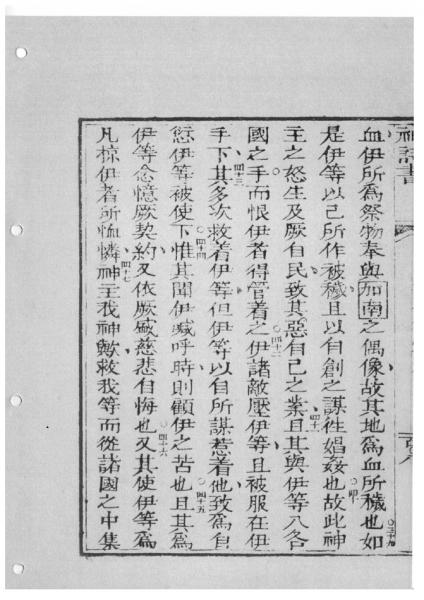 神詩書
血伊所爲祭物奉與加南之偶像故其地爲血所穢也如三十九
是伊等以己所作被穢且以自創之謀徃娼姦也故此神四十
主之怒生及厥自民致其惡自己之業且其與伊等入各四十一
國之手而恨伊者得管着之伊諸敵壓伊等且被服在伊四十二
手下其多次救着伊等但伊等以自所謀惹着他致爲自四十三
愆伊等被使下惟其聞伊喊呼時則顧伊之苦也且其爲四十四 四十五
伊等念憶厥契約又依厥盛慈悲自悔也又其使伊等爲四十六
凡掠伊者所恤憐神主我神歟救我等而從諸國之中集四十七